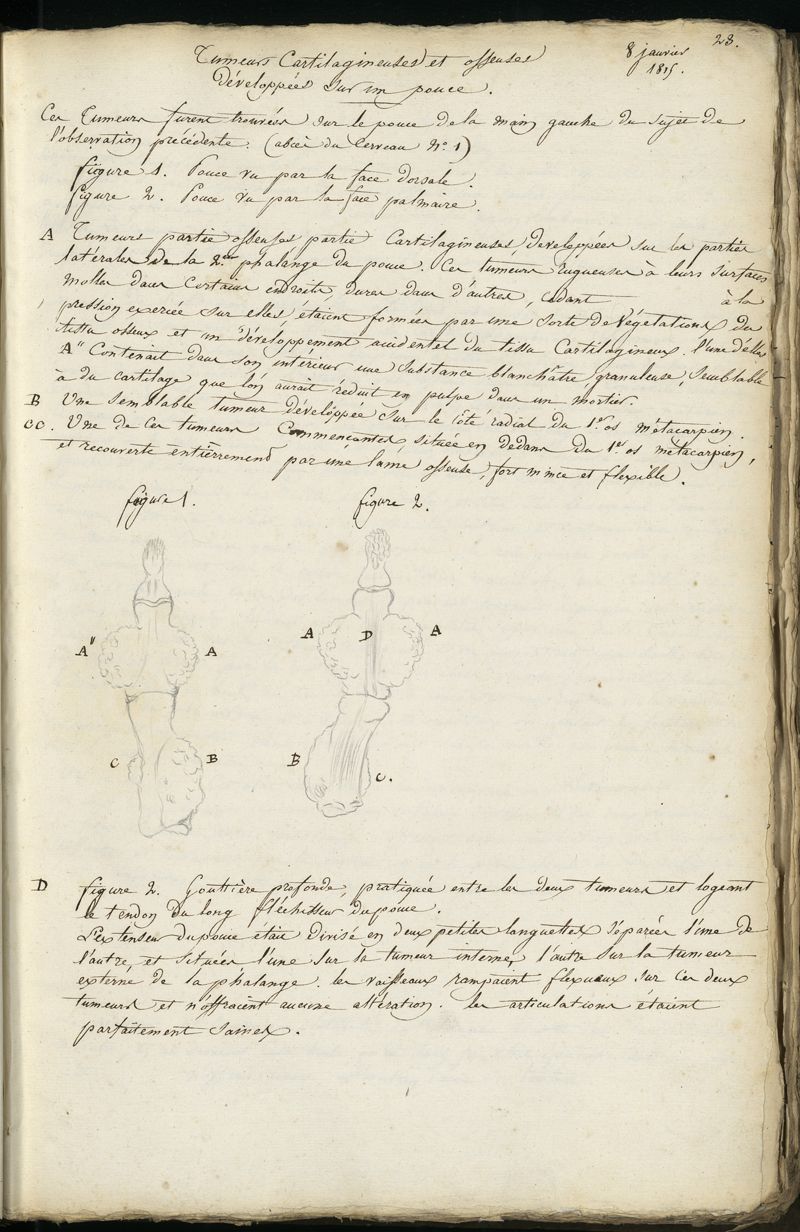 23.
8 janvier
1815.
Tumeurs Cartilagineuses et osseuses
Développées sur un pouce.
Ces Tumeurs furent trouvées sur le pouce de la main gauche du sujet de
l'observation précédente. (abcès du Cerveau N.° 1)
figure 1. Pouce vu par la face dorsale.
figure 2. Pouce vu par la face palmaire.
A Tumeurs partie osseuses partie Cartilagineuses, developpées sur les parties
latérales de la 2.me phalange du pouce. Ces tumeurs rugueuses à leurs surfaces
molles dans Certains endroits, dures dans d'autres, cédant à la
pression exercée sur elles, étaient formées par une sorte de végétations du
tissu osseux et un développement accidentel du tissu Cartilagineux. l'une d'elles
A" Contenait dans son intérieur une substance blanchâtre, granuleuse, semblable
à du cartilage que l'on aurait réduit en pulpe dans un mortier.
B Une semblable tumeur développée sur le côté radial du 1.er os métacarpien.
CC. Une de ces tumeurs Commencantes, située en dedans du 1.er os métacarpien,
et recouverte entièrremend par une lame osseuse, fort mince et flexible.
figure 1. figure 2.
A" A A D A
C B B C.
D figure 2. Gouttière profonde, pratiquée entre les deux tumeurs et logeant
le tendon du long fléchisseur du pouce.
L'extenseur du pouce était divisé en deux petites languettes séparées l'une de
l'autre, et situées l'une sur la tumeur interne, l'autre sur la tumeur
externe de la phalange. les vaisseaux rampaient flexueux sur ces deux
tumeurs et n'offraient aucune altération. les articulations étaient
parfaitement saines.